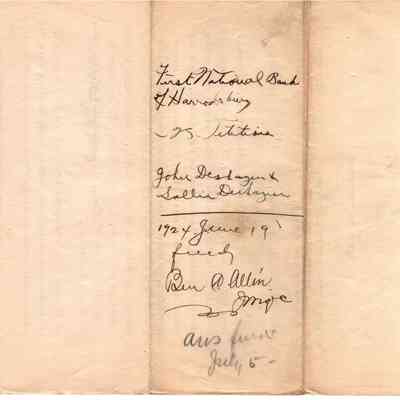 First National Bank
of Harrodsburg
vs. Petition
John Deshazer &
Sallie Deshazer
1924 June 19
filed
Ben A Allin
ans filed
July 5 -